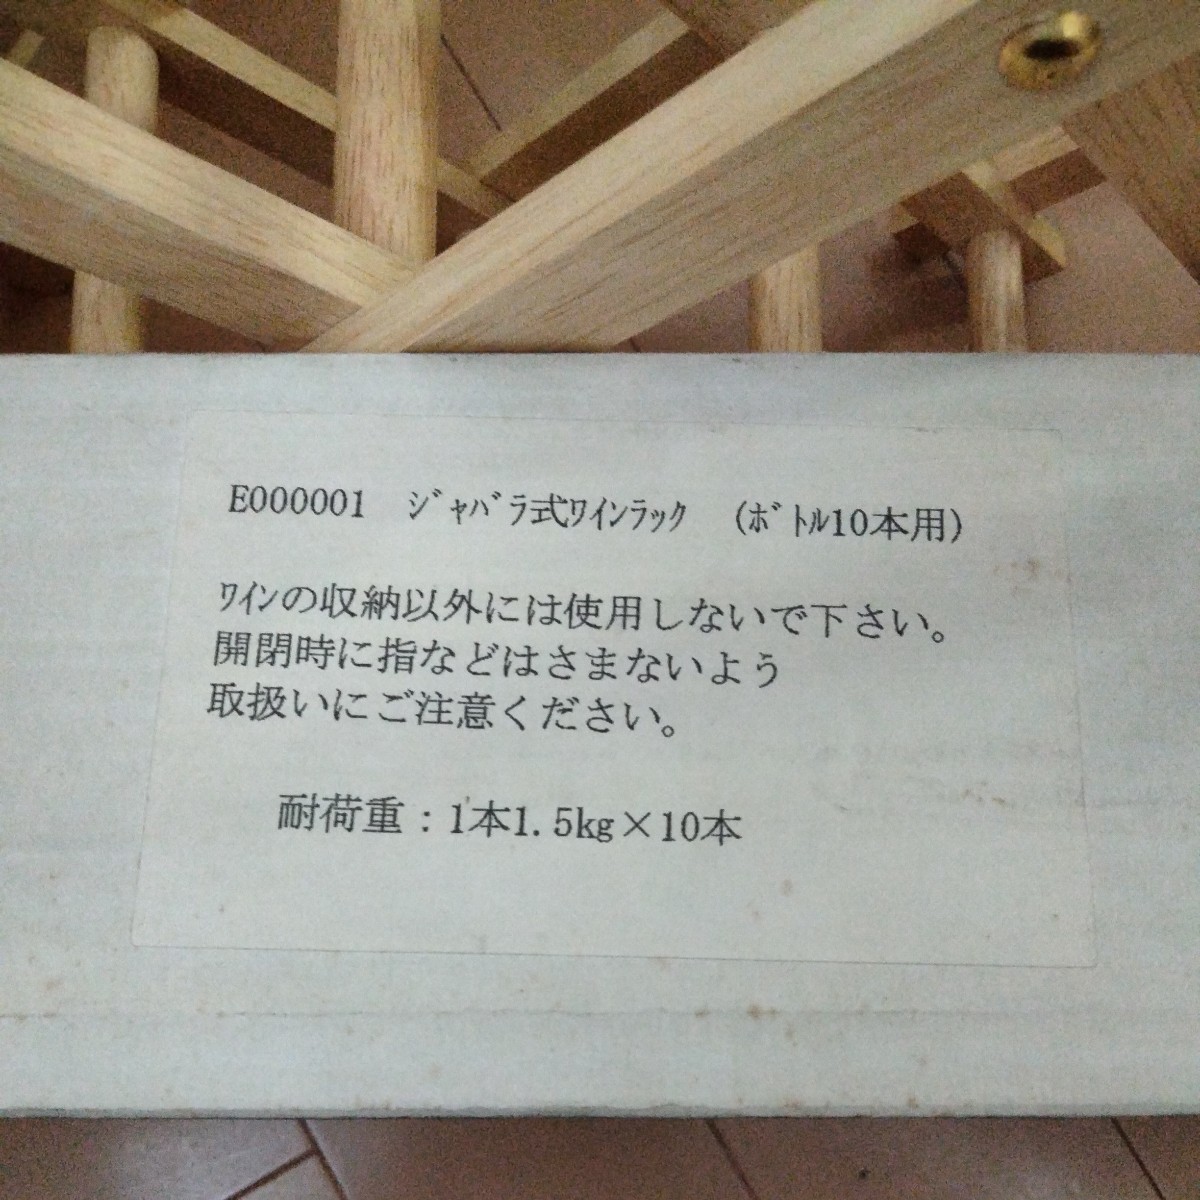 E000001　ｼﾞｬﾊﾞﾗ式ﾜｲﾝﾗｯｸ　(ﾎﾞﾄﾙ10本用)
ﾜｲﾝの収納以外には使用しないで下さい。
開閉時に指などはさまないよう
取扱いにご注意ください。
耐荷重：1本1.5kg×10本